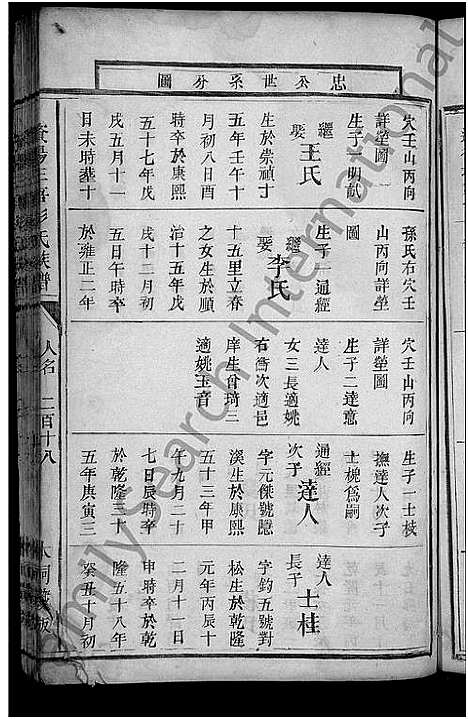 忠公世系分圖
穴壬山丙向
詳塋圖
生子一明猷
繼娶王氏
生於崇禎丁
五年壬午十
月初八日酉
時卒於康熙
五十七年戊
戌五月十一
日未時葬十
孫氏右穴壬
山丙向詳塋
圖
生子一通經
繼娶李氏
十五里立春
之女生於順
治十五年戊
戌十二月初
五日午時卒
於雍正二年
穴壬山丙向
詳塋圖
生子二達意
達人
女三長適姚
右喬次適邑
庠生曾琦三
適姚玉音
生子一士枝
撫達人次子
士槐為嗣
通經次子達人
字元傑號聽
溪生於康熙
五十三年甲
午九月二十
七日辰時卒
於乾隆三十
五年庚寅三
達人長子士桂
字鈞五號對
松生於乾隆
元年丙辰十
二月十一日
申時卒於乾
隆五十八年
癸丑十月初
氏族譜
人名
二百十八
FamilySearch International